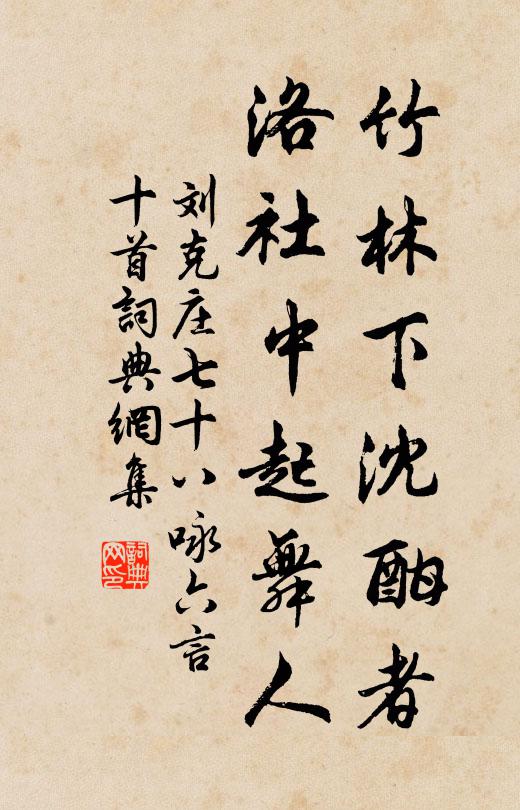 竹林下沈酣者
洛社中起舞人
刘克庄七十八咏六言
十首詞典網集
詞典网印